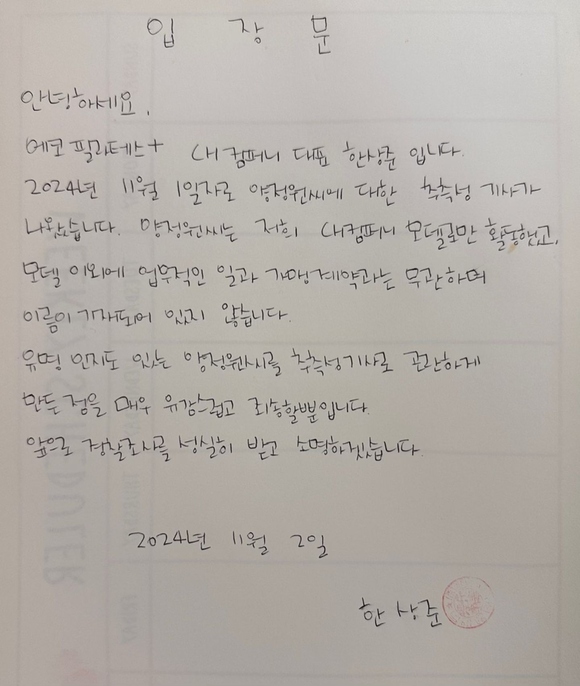 입 장 문
안녕하세요.
에코필라테스+ SH컴퍼니 대표 한상준 입니다.
2024년 11월 1일자로 양정원씨에 대한 추측성 기사가
나왔습니다. 양정원씨는 저희 SH컴퍼니 모델로만 활동했고,
모델 이외에 업무적인 일과 가맹계약과는 무관하며
이름이 기재되어 있지 않습니다.
유명 인지도 있는 양정원씨를 추측성기사로 곤란하게
만든 점을 매우 유감스럽고 죄송할뿐입니다.
앞으로 경찰조사를 성실히 받고 소명하겠습니다.
2024년 11월 2일
한 상 준